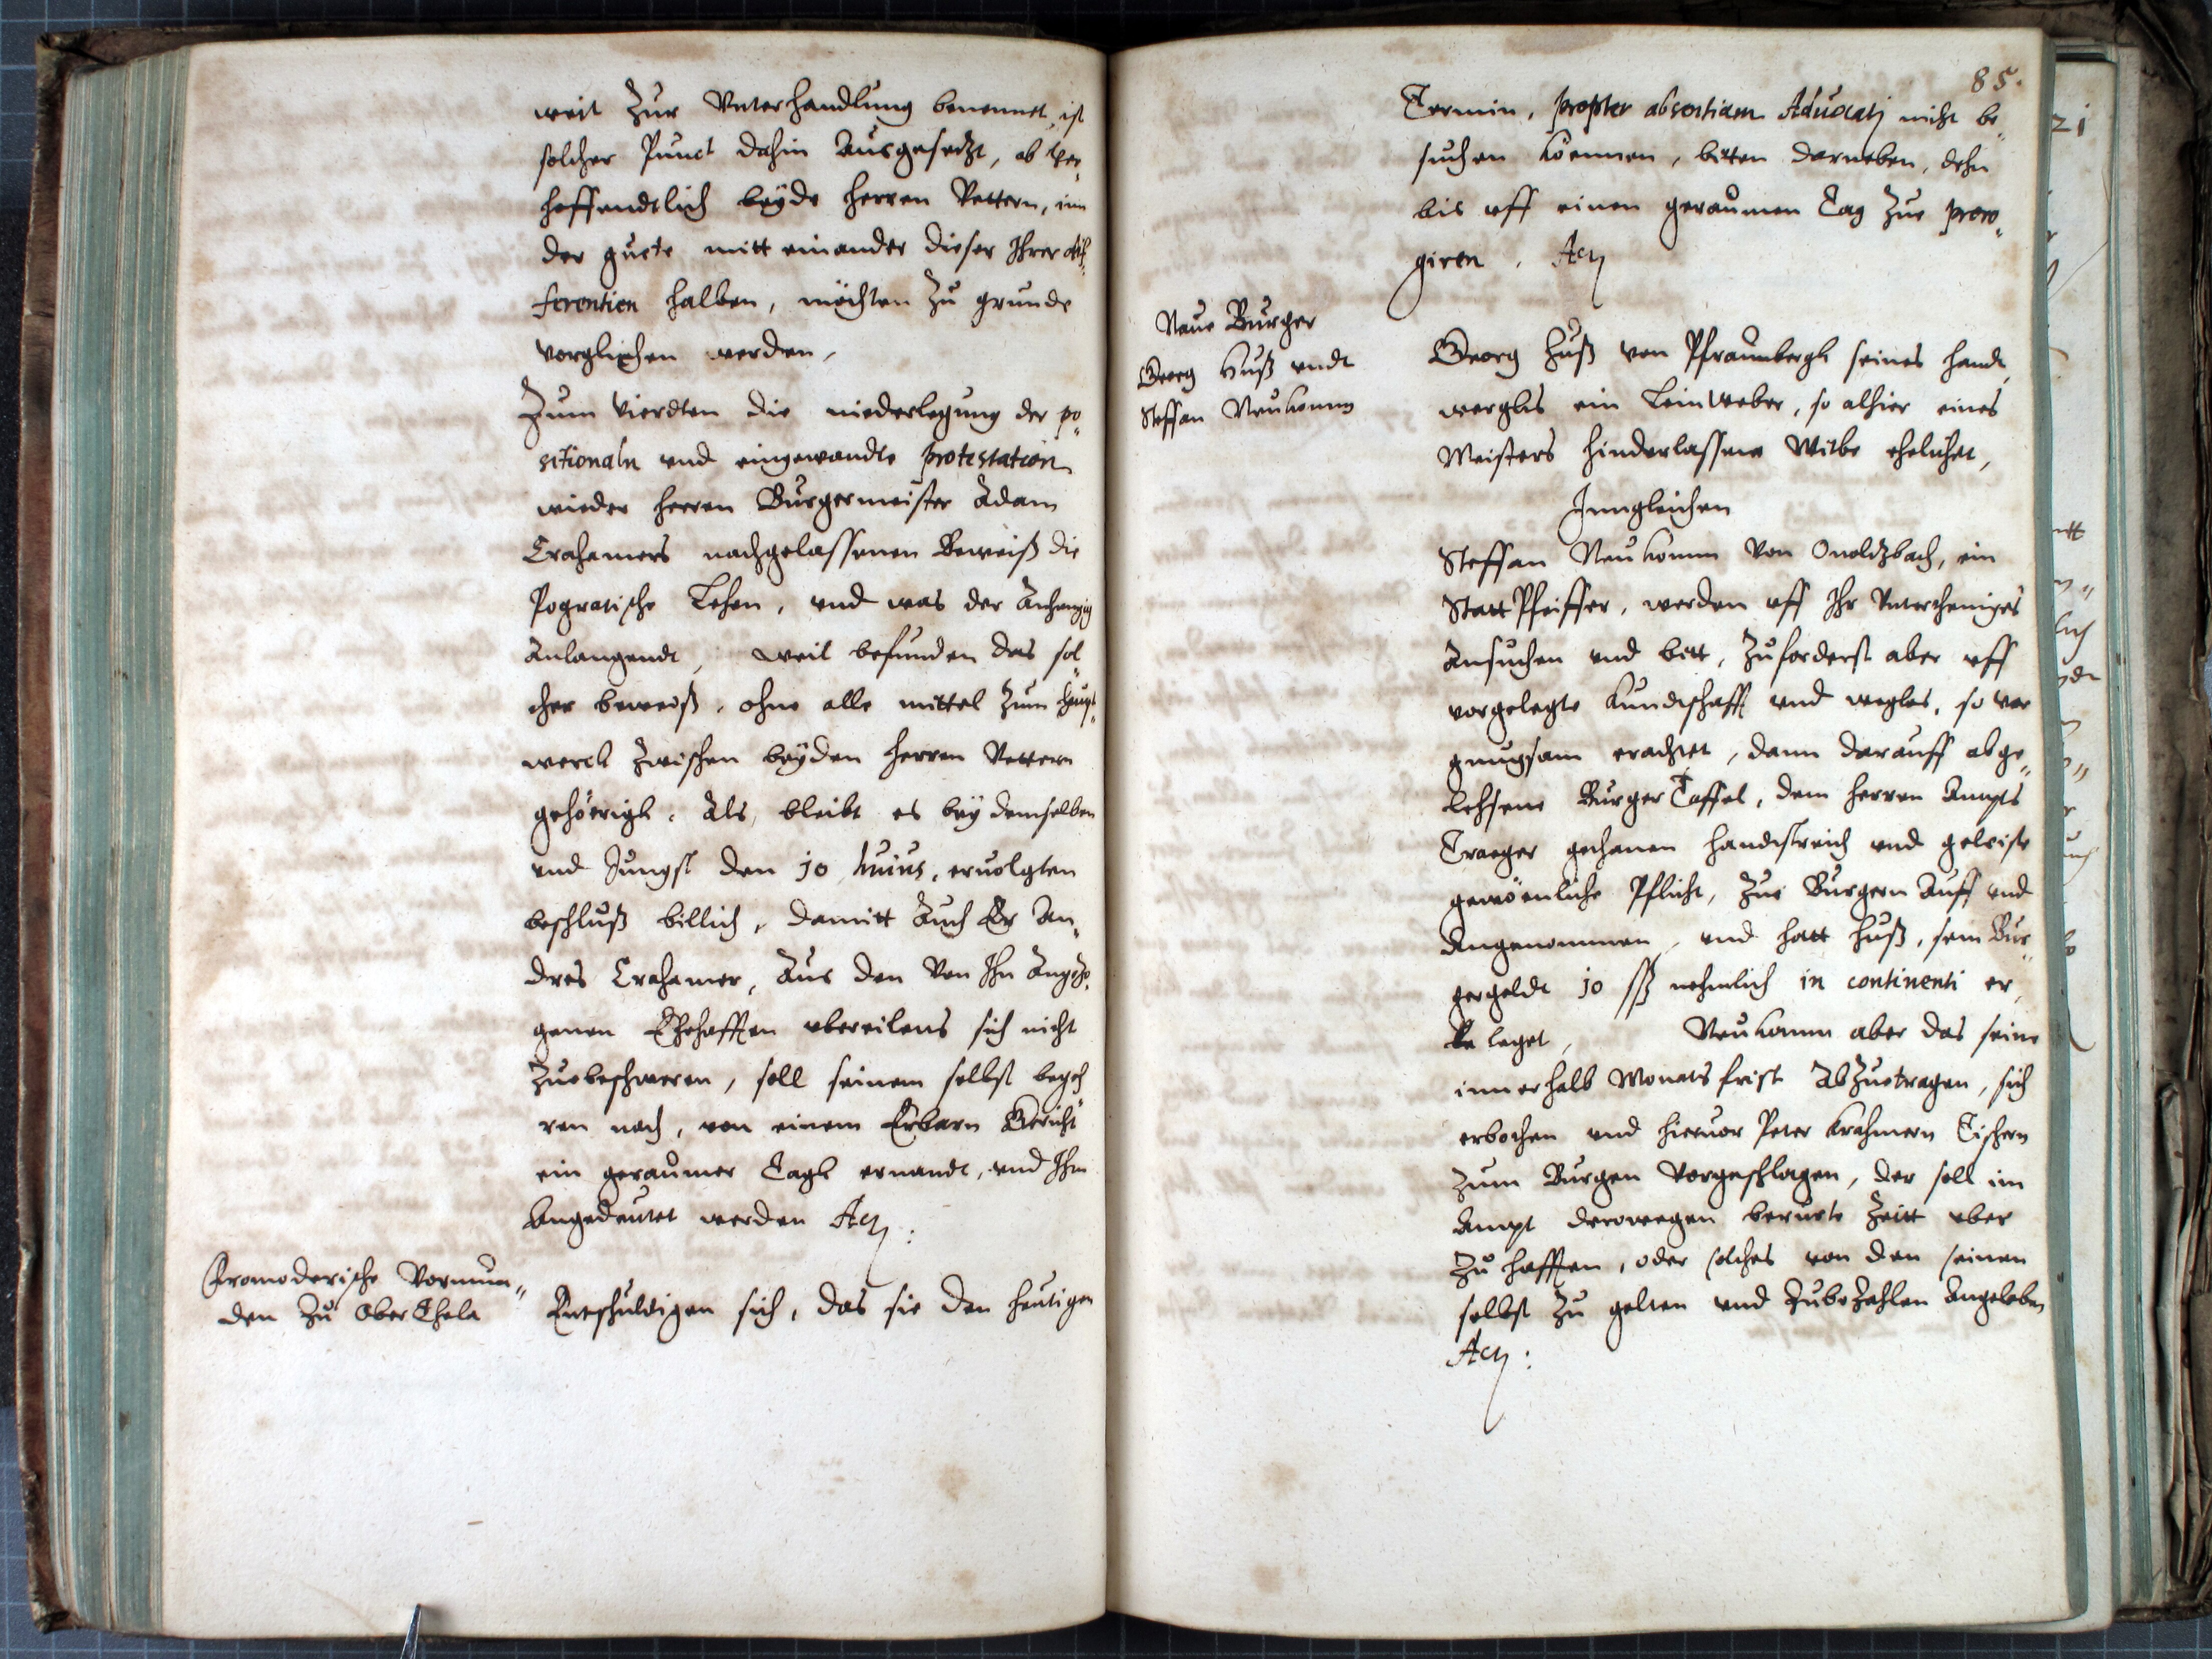 weit zur Unterhandlung benennet, ist
solcher Punct dahin ausgesetzt, ob ver„
hoffendtlich beÿde Herren Vettern, inn
der guete mitt einander dieser Ihrer dif„
ferentien halben, möchten zu grunde
verglichen werden,
Zum Vierdten die niederlegung der po„
sitionaln und eingewandte protestation
wieder Herren Burgermeister Adam
Crahamers nachgelassenen Beweiß die
Pogratische Lehen, und was der Anhengig
Anlangendt, weil befunden das sol„
cher beweiß, ohne alle mittel zum Haupt„
werck zwischen beÿden Herren Vettern
gehörigk, Als, bleibt es beÿ demselben
und Jungst den 10 huius, ervolgten
beschluß billich, damitt Auch Er An„
dres Crahamer, Aus den von Ihn Angezo„
genen Ehehafften ubereilens sich nicht
zuebeschweren, soll seinem selbst begeh„
ren nach, von einem Erbarn Gericht
ein geraumer Tagk ernandt, und Ihm
Angedeutet werden Act:
Fromoderische Vormun„
den zu Ober Thela
Entschuldigen sich, das sie den heutigen
85.
Termin, propter absentiam Aduocatj nicht be„
suchen koennen, bitten darneben, dehn
bis uff einen geraumen Tag zue proro„
giren. Act
Neue Burger
Georg Huß undt
Steffan Neukomm
Georg Huß von Pfraumbergk seines Handt„
wergks ein Leinweber, so alhier eines
Meisters hinderlassene Witbe ehelichet,
Inngleichen
Steffan Neukomm von Onoldzbach, ein
Statt Pfeiffer, werden uff Ihr Untertheniges
Ansuchen und bitt, zuforderst aber uff
vorgelegte Kundschafft und , so vor
gnugsam erachtet, dann darauff abge„
lehsene Burger Taffel, dem Herren Ampts
Traeger gethanen Handtstreich und geleiste
gewöenliche Pflicht, zue Burgern Auff und
Angenommen, und hatt Huß, sein Bur„
gergeldt 10 ßß nehmlich in continenti er„
leget, Neukomm aber das seine
innerhalb Monats frist Abzuetragen, sich
erbothen und hieruor Peter Krahmern Tischern
zum Burgen vorgeschlagen, der soll im
Ampt derowegen berurte Zeitt uber
zu hafften, oder solches von den seinen
selbst zu gelten und zubezahlen Angeloben
Act: